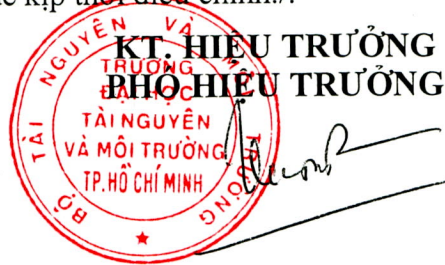 kịp thời điều chỉnh./.
KT. HIỆU TRƯỞNG
PHÓ HIỆU TRƯỞNG
BỘ TÀI NGUYÊN VÀ MÔI TRƯỜNG
TRƯỜNG
ĐẠI HỌC
TÀI NGUYÊN
VÀ MÔI TRƯỜNG
TP. HỒ CHÍ MINH